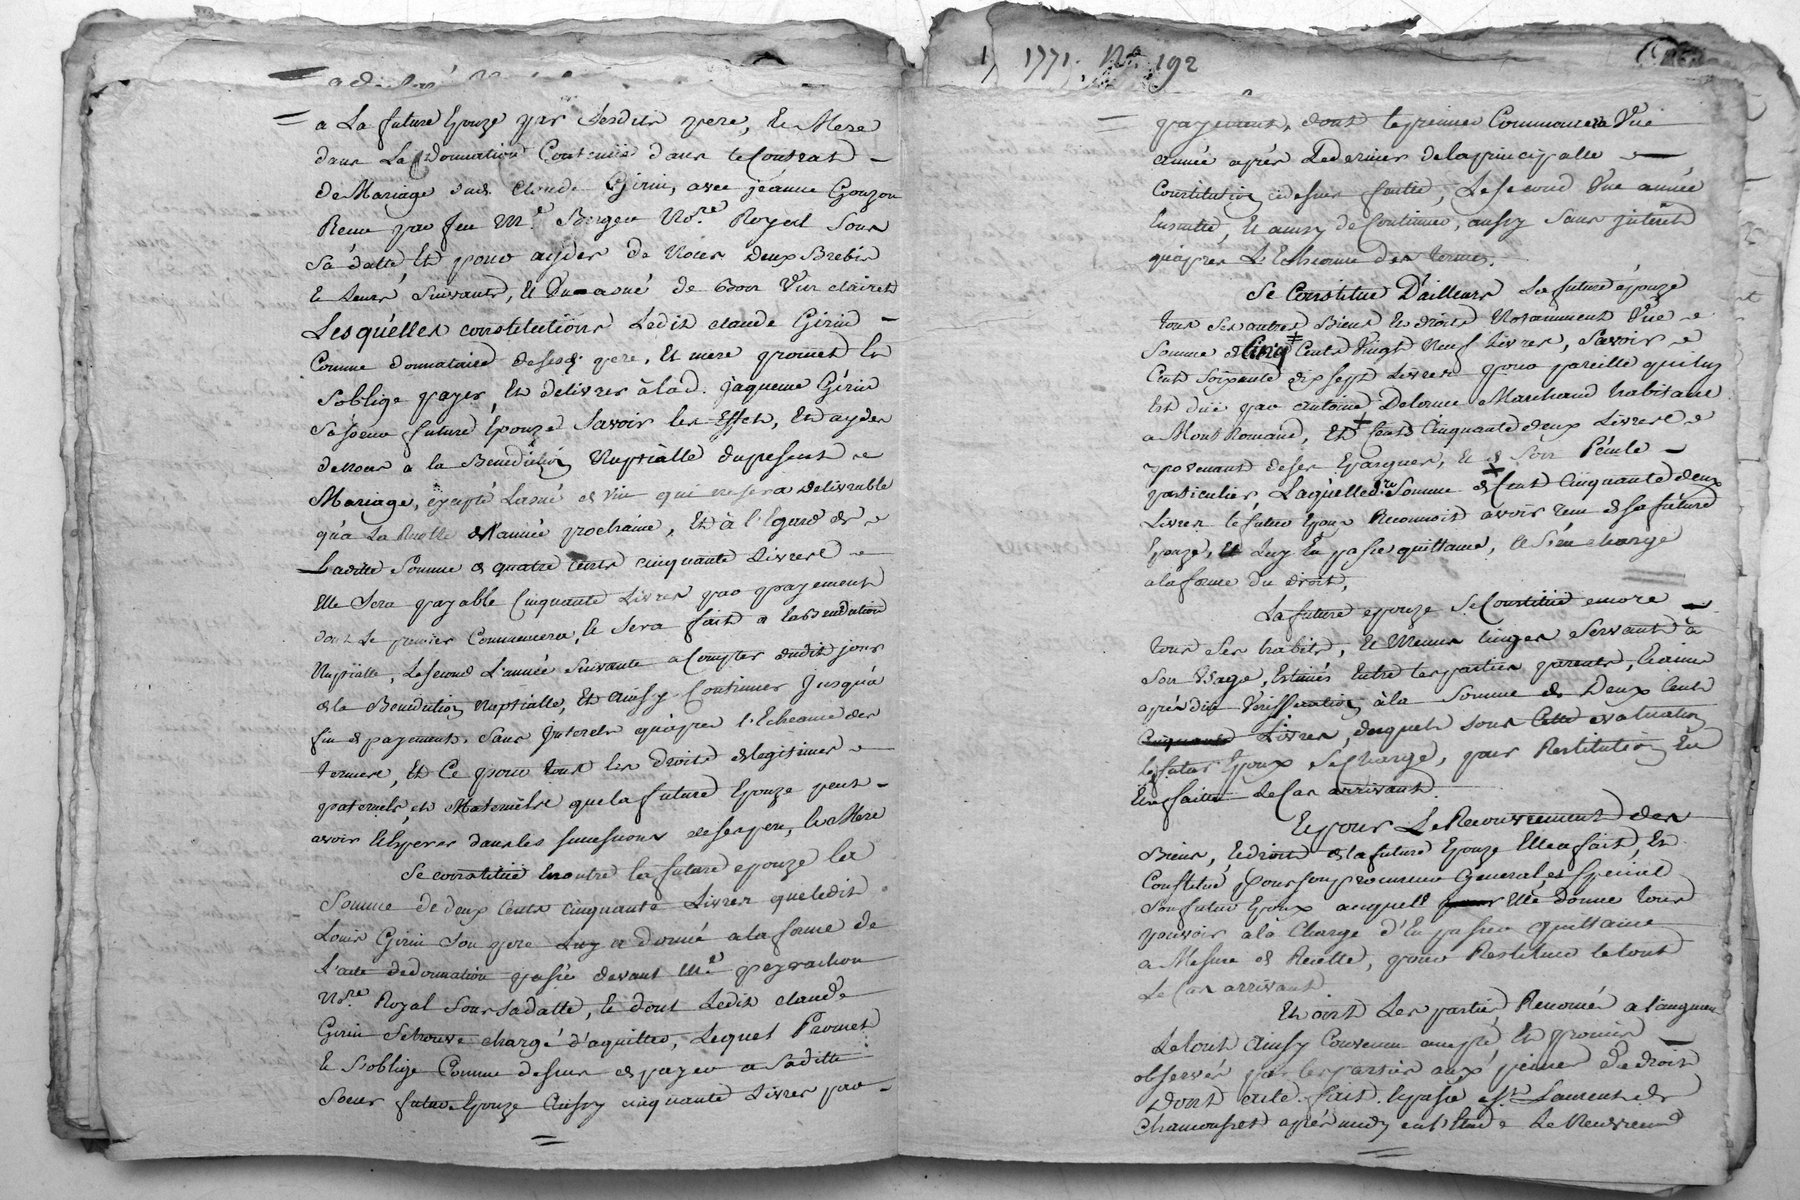 a La future Epouze par Lesdits pere, Et Mere
dans La Donnation Contenüe dans le Contrat
de Mariage dud. Claude Girin, avec jeanne Gouzon
Recu par feu Me. Bergeu Nore. Royal Sous
Sa datte, Et pour ayder de Noces deux Brebis
Et Leurs Suivants, Et Un asné de bon Vin clairet
Lesquelles constitutions Ledit claude Girin
Comme donnataire desesd. pere, Et mere promet Et
s'oblige payer, Et delivrer à lad. jaqueme Girin
Sa soeur future Epouze Savoir les Effets, Et ayder
de noces a la Benediction Nuptialle du present
Mariage, exepté Lasné de Vin qui ne sera delivrable
qu'a La Recolte de l'année prochaine, Et à l'Egard de
Laditte Somme de quatre cents cinquante Livres
Elle Sera payable Cinquante Livres par payement
dont Le premier Commencera, Et Sera fait a la Benediction
Nuptialle, Le second L'année Suivante a Compter dudit jour
de la Benediction Nuptialle, Et Ainsy Continuer Jusqu'a
fin de payement, Sans Interets qu'apres l'Echeance des
termes, Et Ce pour tous les droits de legitimes
paternels, et Maternels que la future Epouze peut
avoir Et Esperer dans les successions de ses pere, Et Mere
Se constitüe En outre la future epouze la
Somme de deux Cents cinquante Livres que ledit
Louis Girin Son pere Luy a donné a la forme de
l'acte de donnation passé devant Me. peyrachon
Nore. Royal Sous Sa datte, Et dont Ledit claude
Girin Se trouve chargé d'aquitter, Lequel Promet
Et S'oblige Comme dessus de payer a Saditte
Soeur future Epouze Ainsy cinquante Livres par
1771. No. 192
payement, dont le premier Commencera Une
année après Le dernier de la principalle
Constitution cy dessus faitte, Le second Une année
Ensuitte, Et ainsy de Continuer, aussy Sans jnterêts
qu'apres L'Echeance des termes.
Se Constitue D'ailleurs La future épouze
tous Ses autres Biens Et droits Notamment Une
Somme de Cinq Cents Vingt Neuf Livres, Savoir
Cent Soixante dix sept Livres pour pareille qui luy
Est düe par Antoine Delorme Marchand habitant
a Mont Romand, Et Cents Cinquante deux Livres
provenant de ses Epargnes, Et de Son Pécule
particulier Laquelle de. Somme de Cent Cinquante deux
Livres le futur Epoux Reconnoit avoir recu de sa future
Epouze, Et Luy En passe quittance, Et S'en charge
a la forme du droit,
La future epouze Se Constitüe encore
tous Ses habits, Et Menus linges Servant à
Son Usage, Estimés Entre les parties parents, Et amis
après düe Veriffication à la Somme de Deux Cent
Cinquante Livres, desquels Sous Cette evaluation
le futur Epoux Se Charge, pour Restitution En
Etre faitte Le Cas arrivant
Et pour Le Recouvrement des
Biens, Et droits de la future Epouze Elle a fait, Et
Constitué pour son procureur General et Special
Son futur Epoux auquel Elle Donne tous
pouvoir à la Charge d'En passer quittance
a Mesure de Recette, pour Restituer le tout
Le Cas arrivant
Et ont Les parties Renoncé a l'augment
Le tout Ainsy Convenu accepté Et promis
observer par les parties aux peines de droit
Dont acte. fait Et passé a St. Laurent de
Chamousset après midy en l'Etude Le Neuvieme